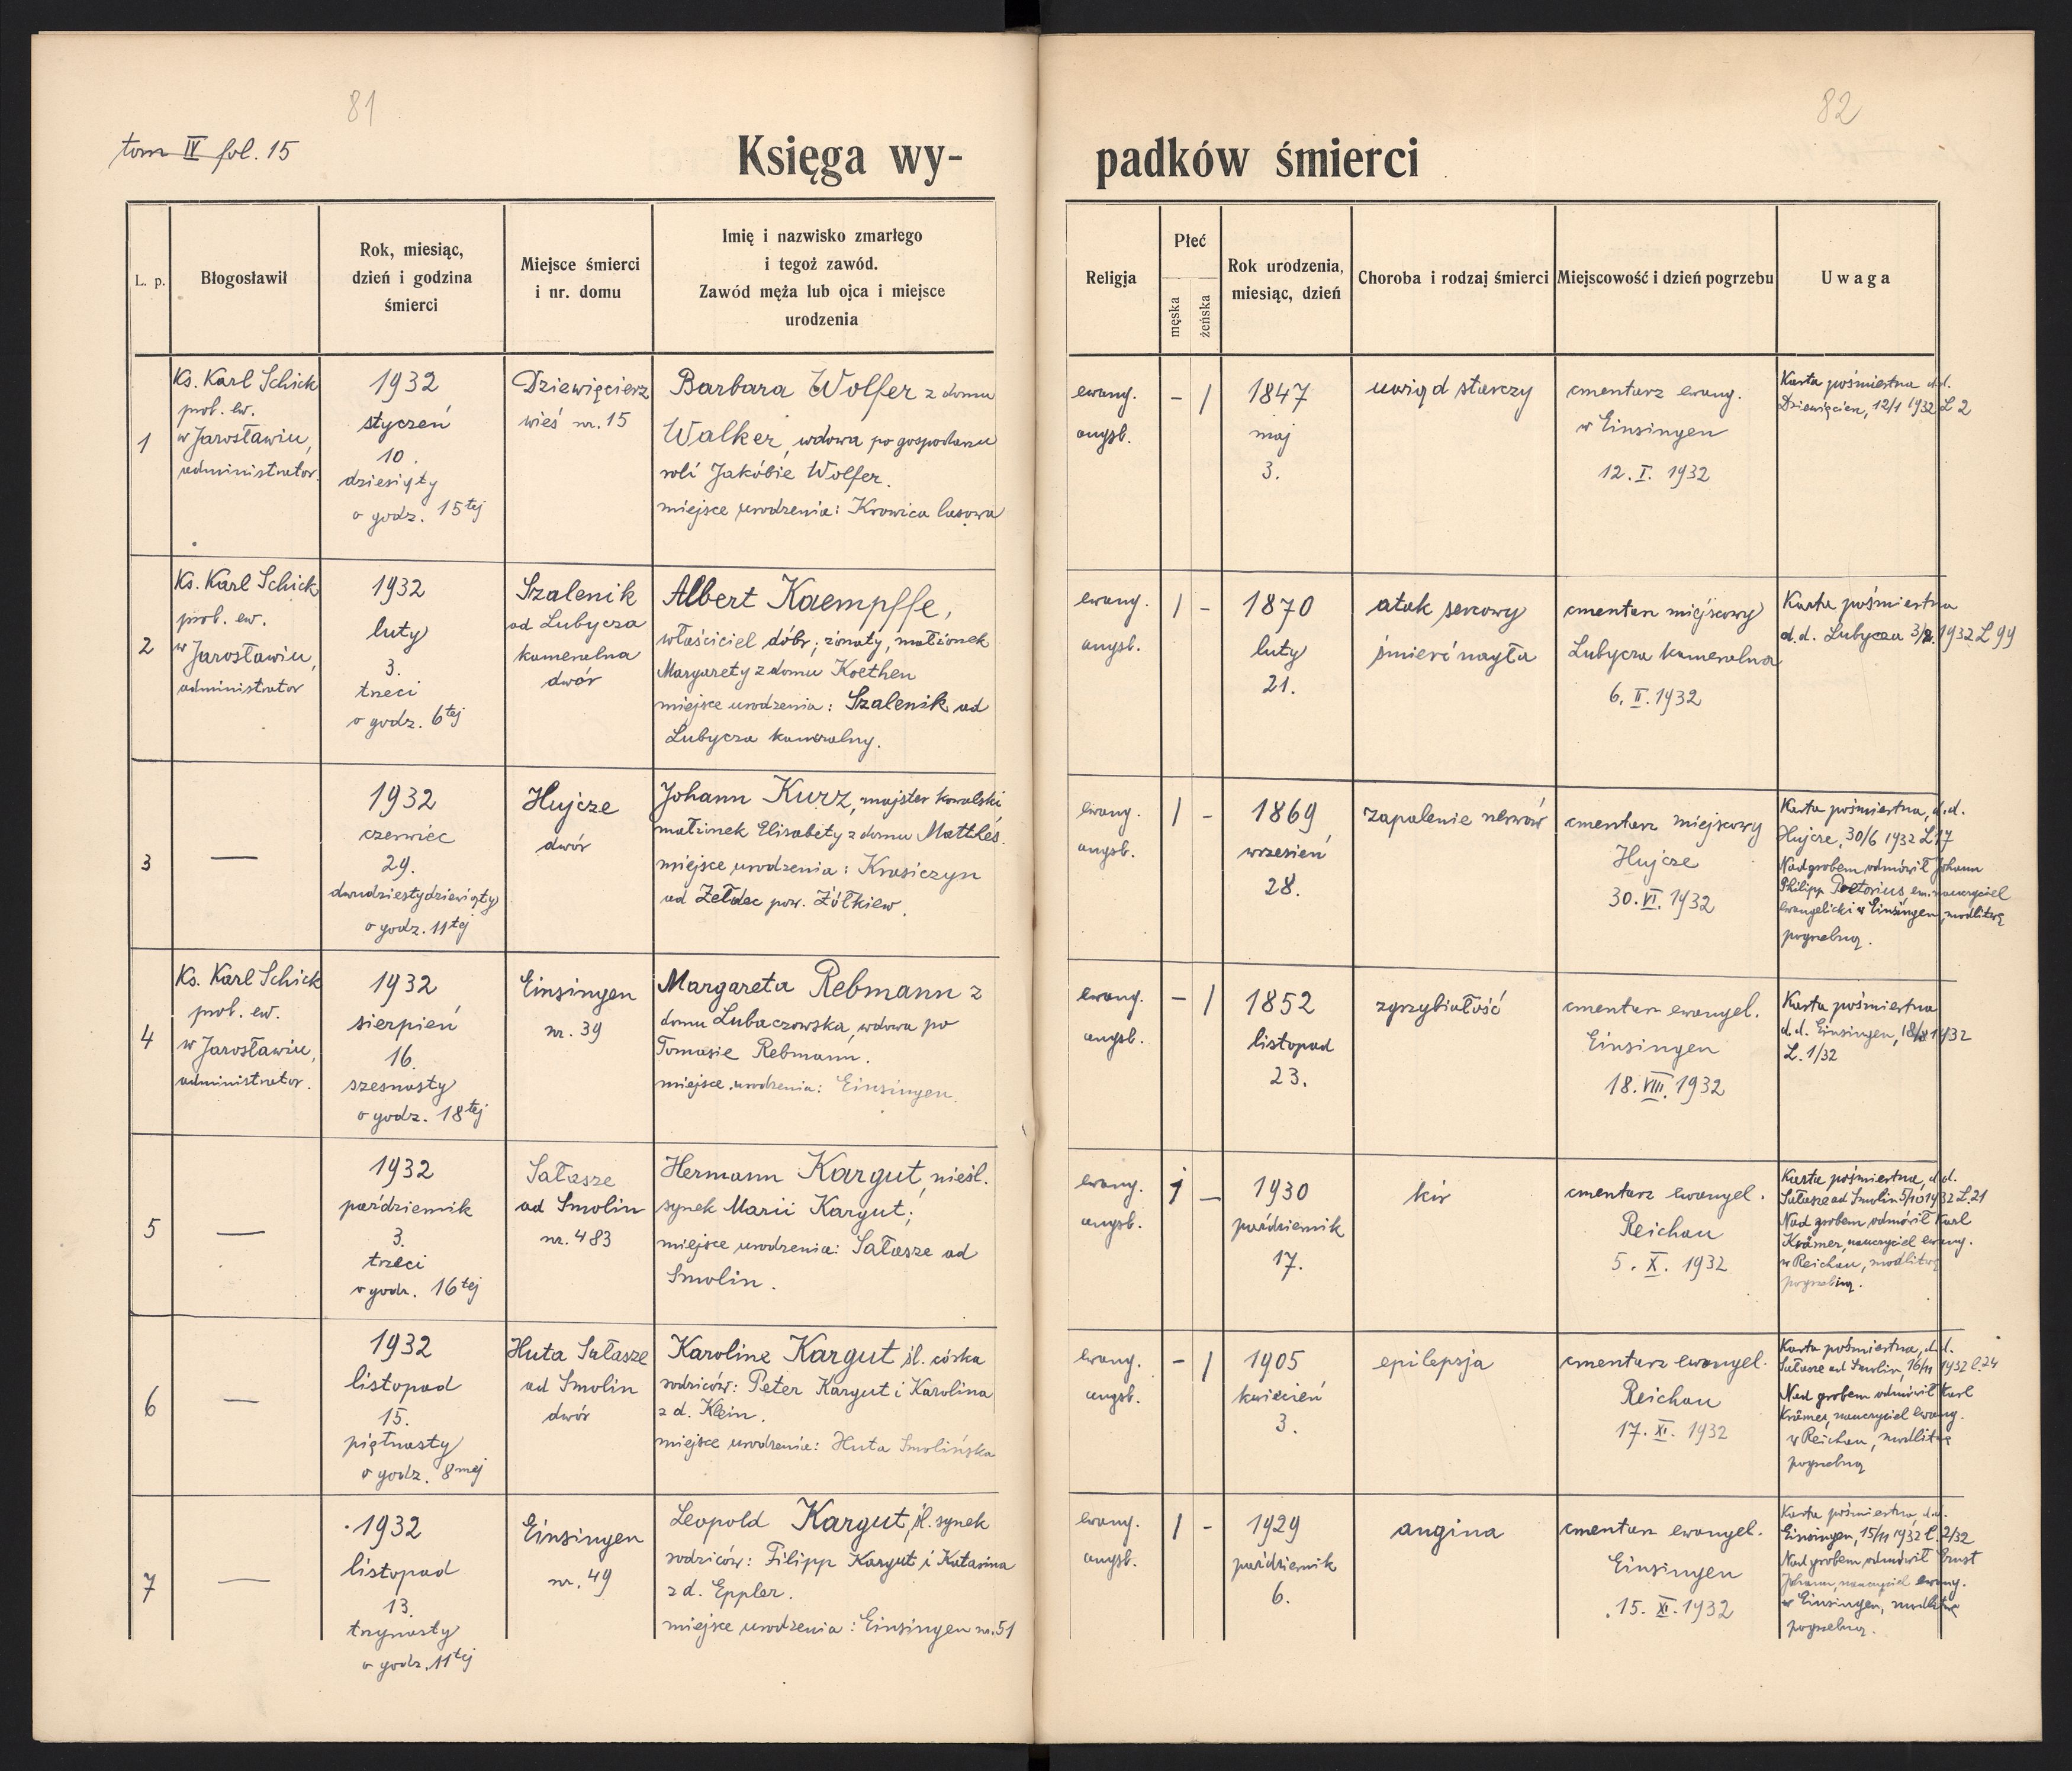 81
82
tom IV fol. 15
Księga wy-
padków śmierci
L. p.
Błogosławił
Rok, miesiąc,
dzień i godzina
śmierci
Miejsce śmierci
i nr. domu
Imię i nazwisko zmarłego
i tegoż zawód.
Zawód męża lub ojca i miejsce
urodzenia
Religja
Płeć
męska
żeńska
Rok urodzenia,
miesiąc, dzień
Choroba i rodzaj śmierci
Miejscowość i dzień pogrzebu
Uwaga
1
Ks. Karl Schick
prob. ew.
w Jarosławiu,
administrator.
1932
styczeń
10.
dziesiąty
o godz. 15tej
Dziewięcierz
wieś nr. 15
Barbara Wolfer z domu
Walker, wdowa po gospodarzu
roli Jakóbie Wolfer.
miejsce urodzenia: Krowica lasowa
ewang.
augsb.
- /
1847
maj
3.
uwiąd starczy
cmentarz ewang.
w Einsingen
12. I. 1932
Karta pośmiertna d.d.
Dziewięcierz, 12/1 1932 L 2
2
Ks. Karl Schick
prob. ew.
w Jarosławiu,
administrator
1932
luty
3.
trzeci
o godz. 6tej
Szalenik
ad Lubycza
kameralna
dwór
Albert Kaempffe,
właściciel dóbr; żonaty, małżonek
Margarety z domu Koethen
miejsce urodzenia: Szalenik ad
Lubycza kameralny.
ewang.
augsb.
/ -
1870
luty
21.
atak sercowy
śmierć nagła
cmentarz miejscowy
Lubycza kameralna
6. II. 1932
Karta pośmiertna
d.d. Lubycza 3/2. 1932 L 99
3
—
1932
czerwiec
29.
dwudziestydziewiąty
o godz. 11tej
Hujcze
dwór
Johann Kurz, majster kowalski
małżonek Elisabety z domu Matthes.
miejsce urodzenia: Krasiczyn
ad Żełdec pow. Żółkiew.
ewang.
augsb.
/ -
1869
wrzesień
28.
zapalenie nerwów
cmentarz miejscowy
Hujcze
30. VI. 1932
Karta pośmiertna, d.d.
Hujcze, 30/6 1932 L 17
Nad grobem odmówił Johann
Philipp Praetorius, em. nauczyciel
ewangelicki w Einsingen, modlitwę
pogrzebną.
4
Ks. Karl Schick
prob. ew.
w Jarosławiu,
administrator.
1932
sierpień
16.
szesnasty
o godz. 18tej
Einsingen
nr. 39
Margareta Rebmann z
domu Lubaczowska, wdowa po
Tomasie Rebmann.
miejsce urodzenia: Einsingen.
ewang.
augsb.
- /
1852
listopad
23.
zgrzybiałość
cmentarz ewangel.
Einsingen
18. VIII. 1932
Karta pośmiertna
d.d. Einsingen, 18/8 1932
L. 1/32
5
—
1932
październik
3.
trzeci
o godz. 16tej
Sałasze
ad Smolin
nr. 483
Hermann Kargut, nieśl.
synek Marii Kargut;
miejsce urodzenia: Sałasze ad
Smolin.
ewang.
augsb.
1 -
1930
październik
17.
kir
cmentarz ewangel.
Reichau
5. X. 1932
Karta pośmiertna, d.d.
Sałasze ad Smolin 5/10 1932 L. 21
Nad grobem odmówił Karl
Krämer, nauczyciel ewang.
w Reichau, modlitwę
pogrzebną.
6
—
1932
listopad
15.
piętnasty
o godz. 8mej
Huta Sałasze
ad Smolin
dwór
Karoline Kargut śl. córka
rodziców: Peter Kargut i Karolina
z d. Klein.
miejsce urodzenia: Huta Smolińska
ewang.
augsb.
- /
1905
kwiecień
3.
epilepsja
cmentarz ewangel.
Reichau
17. XI. 1932
Karta pośmiertna, d.d.
Sałasze ad Smolin, 16/11 1932 L. 24
Nad grobem odmówił Karl
Krämer, nauczyciel ewang.
w Reichau, modlitwę
pogrzebną
7
—
1932
listopad
13.
trzynasty
o godz. 11tej
Einsingen
nr. 49
Leopold Kargut, śl. synek
rodziców: Filipp Kargut i Katarina
z d. Eppler.
miejsce urodzenia: Einsingen nr. 51
ewang.
augsb.
/ -
1929
październik
6.
angina
cmentarz ewangel.
Einsingen
15. XI. 1932
Karta pośmiertna, d.d.
Einsingen, 15/11 1932 L. 2/32
Nad grobem odmówił Ernst
Johann, nauczyciel ewang.
w Einsingen, modlitwę
pogrzebną.